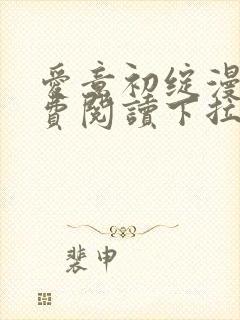 愛意初綻漫
費閱讀下拉
裴申